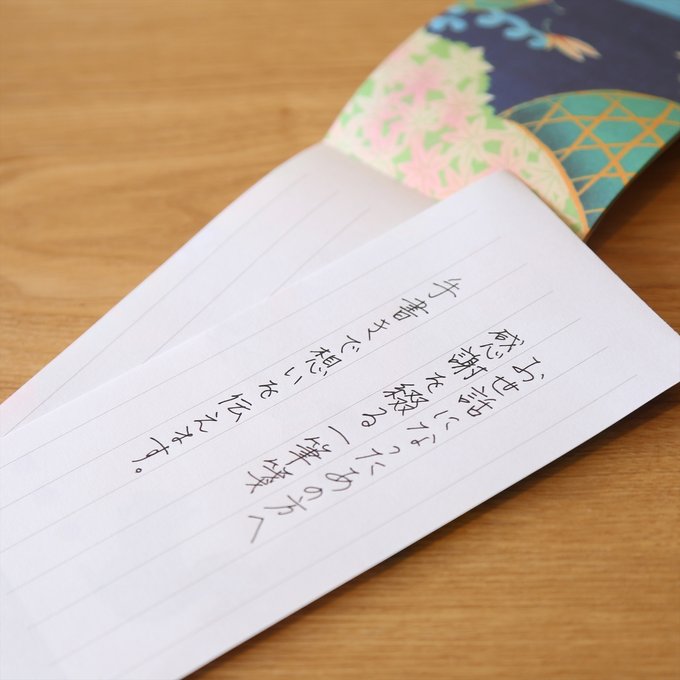 お世話になったあの方へ
感謝を綴る一筆箋
手書きで想いを伝えます。